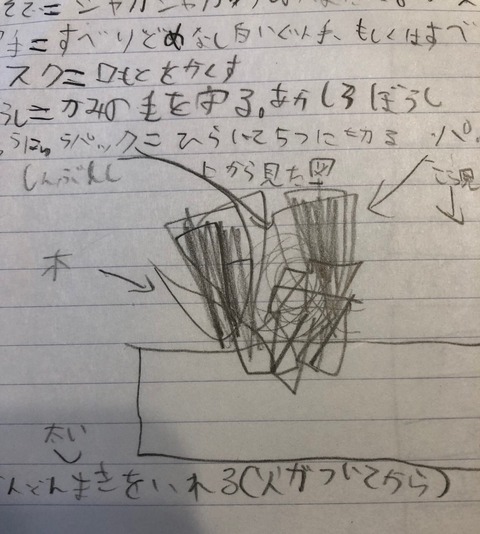 そでニ シャカシャカ
手ニすべりどめなし白いぐん手、もしくはすべ
スクニ口もとをかくす
ニかみの毛を守る。あかしろぼうし
パックニ ひらいて5つに切る パ。
しんぶんし 上から見た図
木
太い
どんどんまきをいれる(火がついてから)